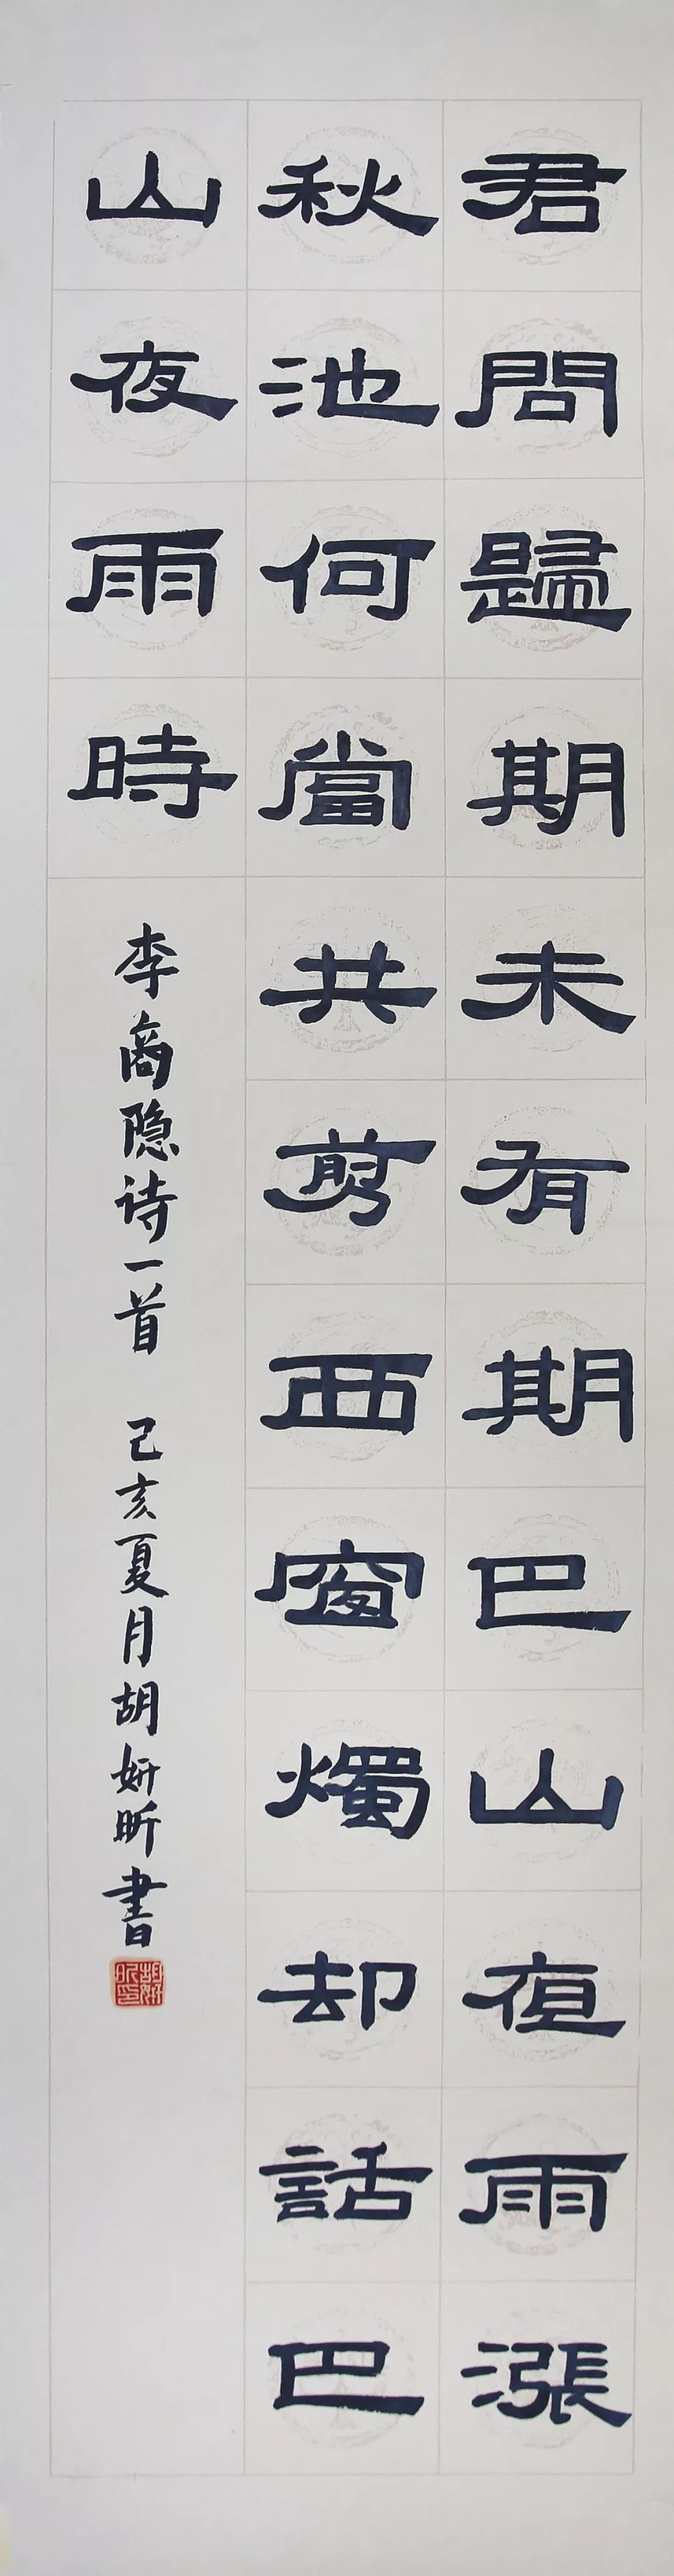 君問歸期未有期巴山夜雨漲
秋池何當共剪西窗燭却話巴
山夜雨時
李商隐诗一首 己亥夏月胡妍昕書
胡妍昕印